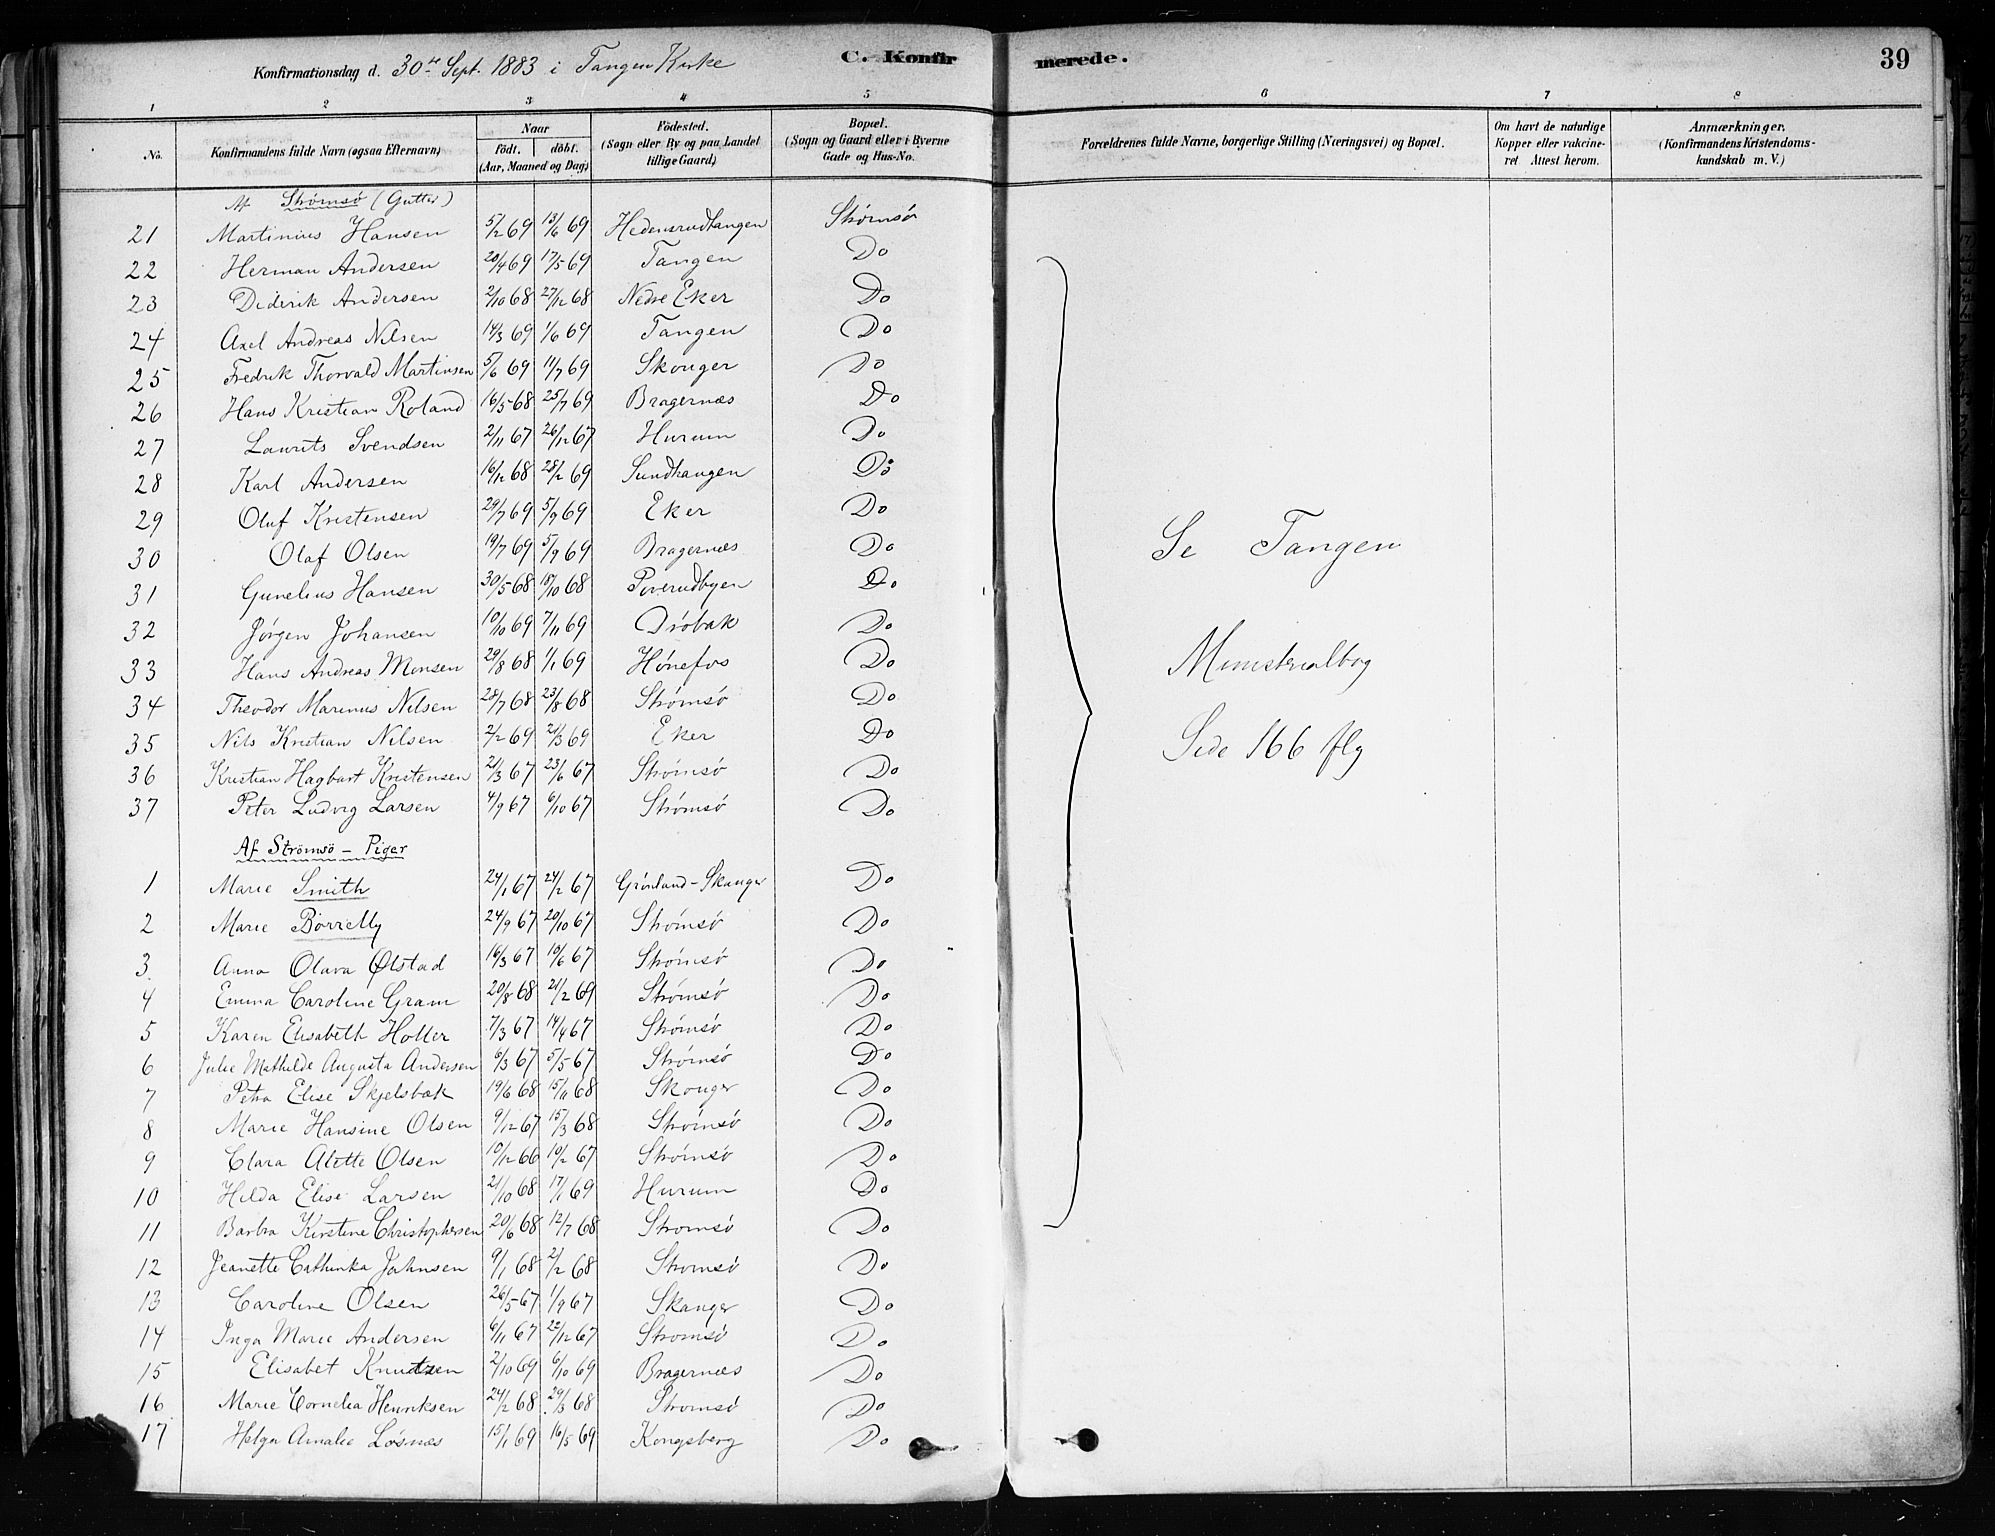 Konfirmationsdag d. 30te Sept. 1883 i Tangen Kirke C. Konfirmerede. 39
1 2 3 4 5 6 7 8
No. Konfirmandens fulde Navn (ogsaa Efternavn) Naar født. døbt. (Aar, Maaned og Dag) Fødested. (Sogn eller By og paa Landet tillige Gaard) Bopæl. (Sogn og Gaard eller i Byerne Gade og Hus-No. Forældrenes fulde Navne, borgerlige Stilling (Næringsvei) og Bopæl. Om havt de naturlige Kopper eller vakcineret. Attest herom. Anmærkninger. (Konfirmandens Kristendomskundskab m. V.)
Af Strømsø (Gutter)
21 Martinius Hansen 5/2 69 13/6 69 Hedensrudtangen Strømsø
22 Herman Andersen 20/4 69 17/5 69 Tangen Do
23 Diderik Andersen 2/10 68 27/12 68 Nedre Eker Do
24 Axel Andreas Nilsen 14/3 69 1/6 69 Tangen Do
25 Fredrik Thorvald Martinsen 5/6 69 11/7 69 Skouger Do
26 Hans Kristian Roland 16/5 68 25/7 69 Bragernæs Do
27 Laurits Svendsen 2/11 67 26/12 67 Hurum Do
28 Karl Andersen 16/12 68 28/2 69 Sundhaugen Do
29 Oluf Kristensen 29/7 69 5/9 69 Eker Do
30 Olaf Olsen 19/7 69 5/9 69 Bragernæs Do
31 Gunelius Hansen 30/5 68 18/10 68 Poverudbyen Do
32 Jørgen Johansen 10/10 69 7/11 69 Drøbak Do
33 Hans Andreas Monsen 29/8 68 1/1 69 Hønefos Do
34 Theodor Marinus Nilsen 28/7 68 23/8 68 Strømsø Do
35 Nils Kristian Nilsen 2/2 69 21/3 69 Eker Do
36 Kristian Hagbart Kristensen 21/3 67 23/6 67 Strømsø Do
37 Peter Ludvig Larsen 4/9 67 6/10 67 Strømsø Do
Se Tangen
Ministerialbog
Side 166 flg
Af Strømsø - Piger
1 Marie Smith 24/1 67 24/2 67 Grønland-Skauger Do
2 Marie Børrelly 24/9 67 20/10 67 Strømsø Do
3 Anna Olava Ølstad 16/3 67 10/6 67 Strømsø Do
4 Emma Caroline Gram 20/8 68 21/2 69 Strømsø Do
5 Karen Elisabeth Holter 7/3 67 14/4 67 Strømsø Do
6 Julie Mathilde Augusta Andersen 6/3 67 5/5 67 Strømsø Do
7 Petra Elise Skjelsbæk 19/6 68 15/11 68 Skouger Do
8 Marie Hansine Olsen 9/12 67 15/3 68 Strømsø Do
9 Clara Alette Olsen 10/12 66 10/2 67 Strømsø Do
10 Hilda Elise Larsen 21/10 68 17/1 69 Hurum Do
11 Barbra Kirstine Christophersen 20/6 68 12/7 68 Strømsø Do
12 Jeanette Cathinka Johnsen 9/1 68 2/2 68 Strømsø Do
13 Caroline Olsen 26/5 67 1/9 67 Skauger Do
14 Inga Marie Andersen 6/11 67 22/12 67 Strømsø Do
15 Elisabet Knutzen 2/10 69 6/10 69 Bragernæs Do
16 Marie Cornelia Henriksen 24/2 68 29/3 68 Strømsø Do
17 Helga Amalie Løsnæs 15/1 69 16/5 69 Kongsberg Do